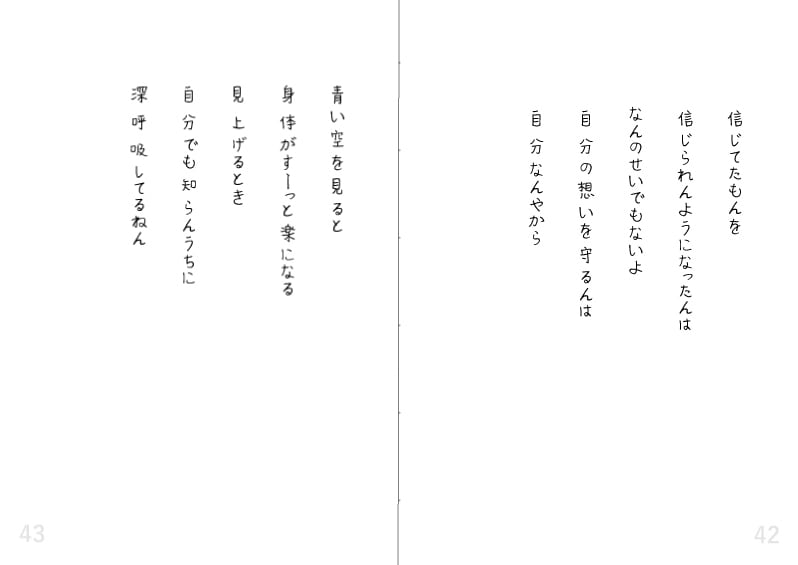 信じてたもんを
信じられんようになったんは
なんのせいでもないよ
自分の想いを守るんは
自分なんやから
42
青い空を見ると
身体がすーっと楽になる
見上げるとき
自分でも知らんうちに
深呼吸してるねん
43